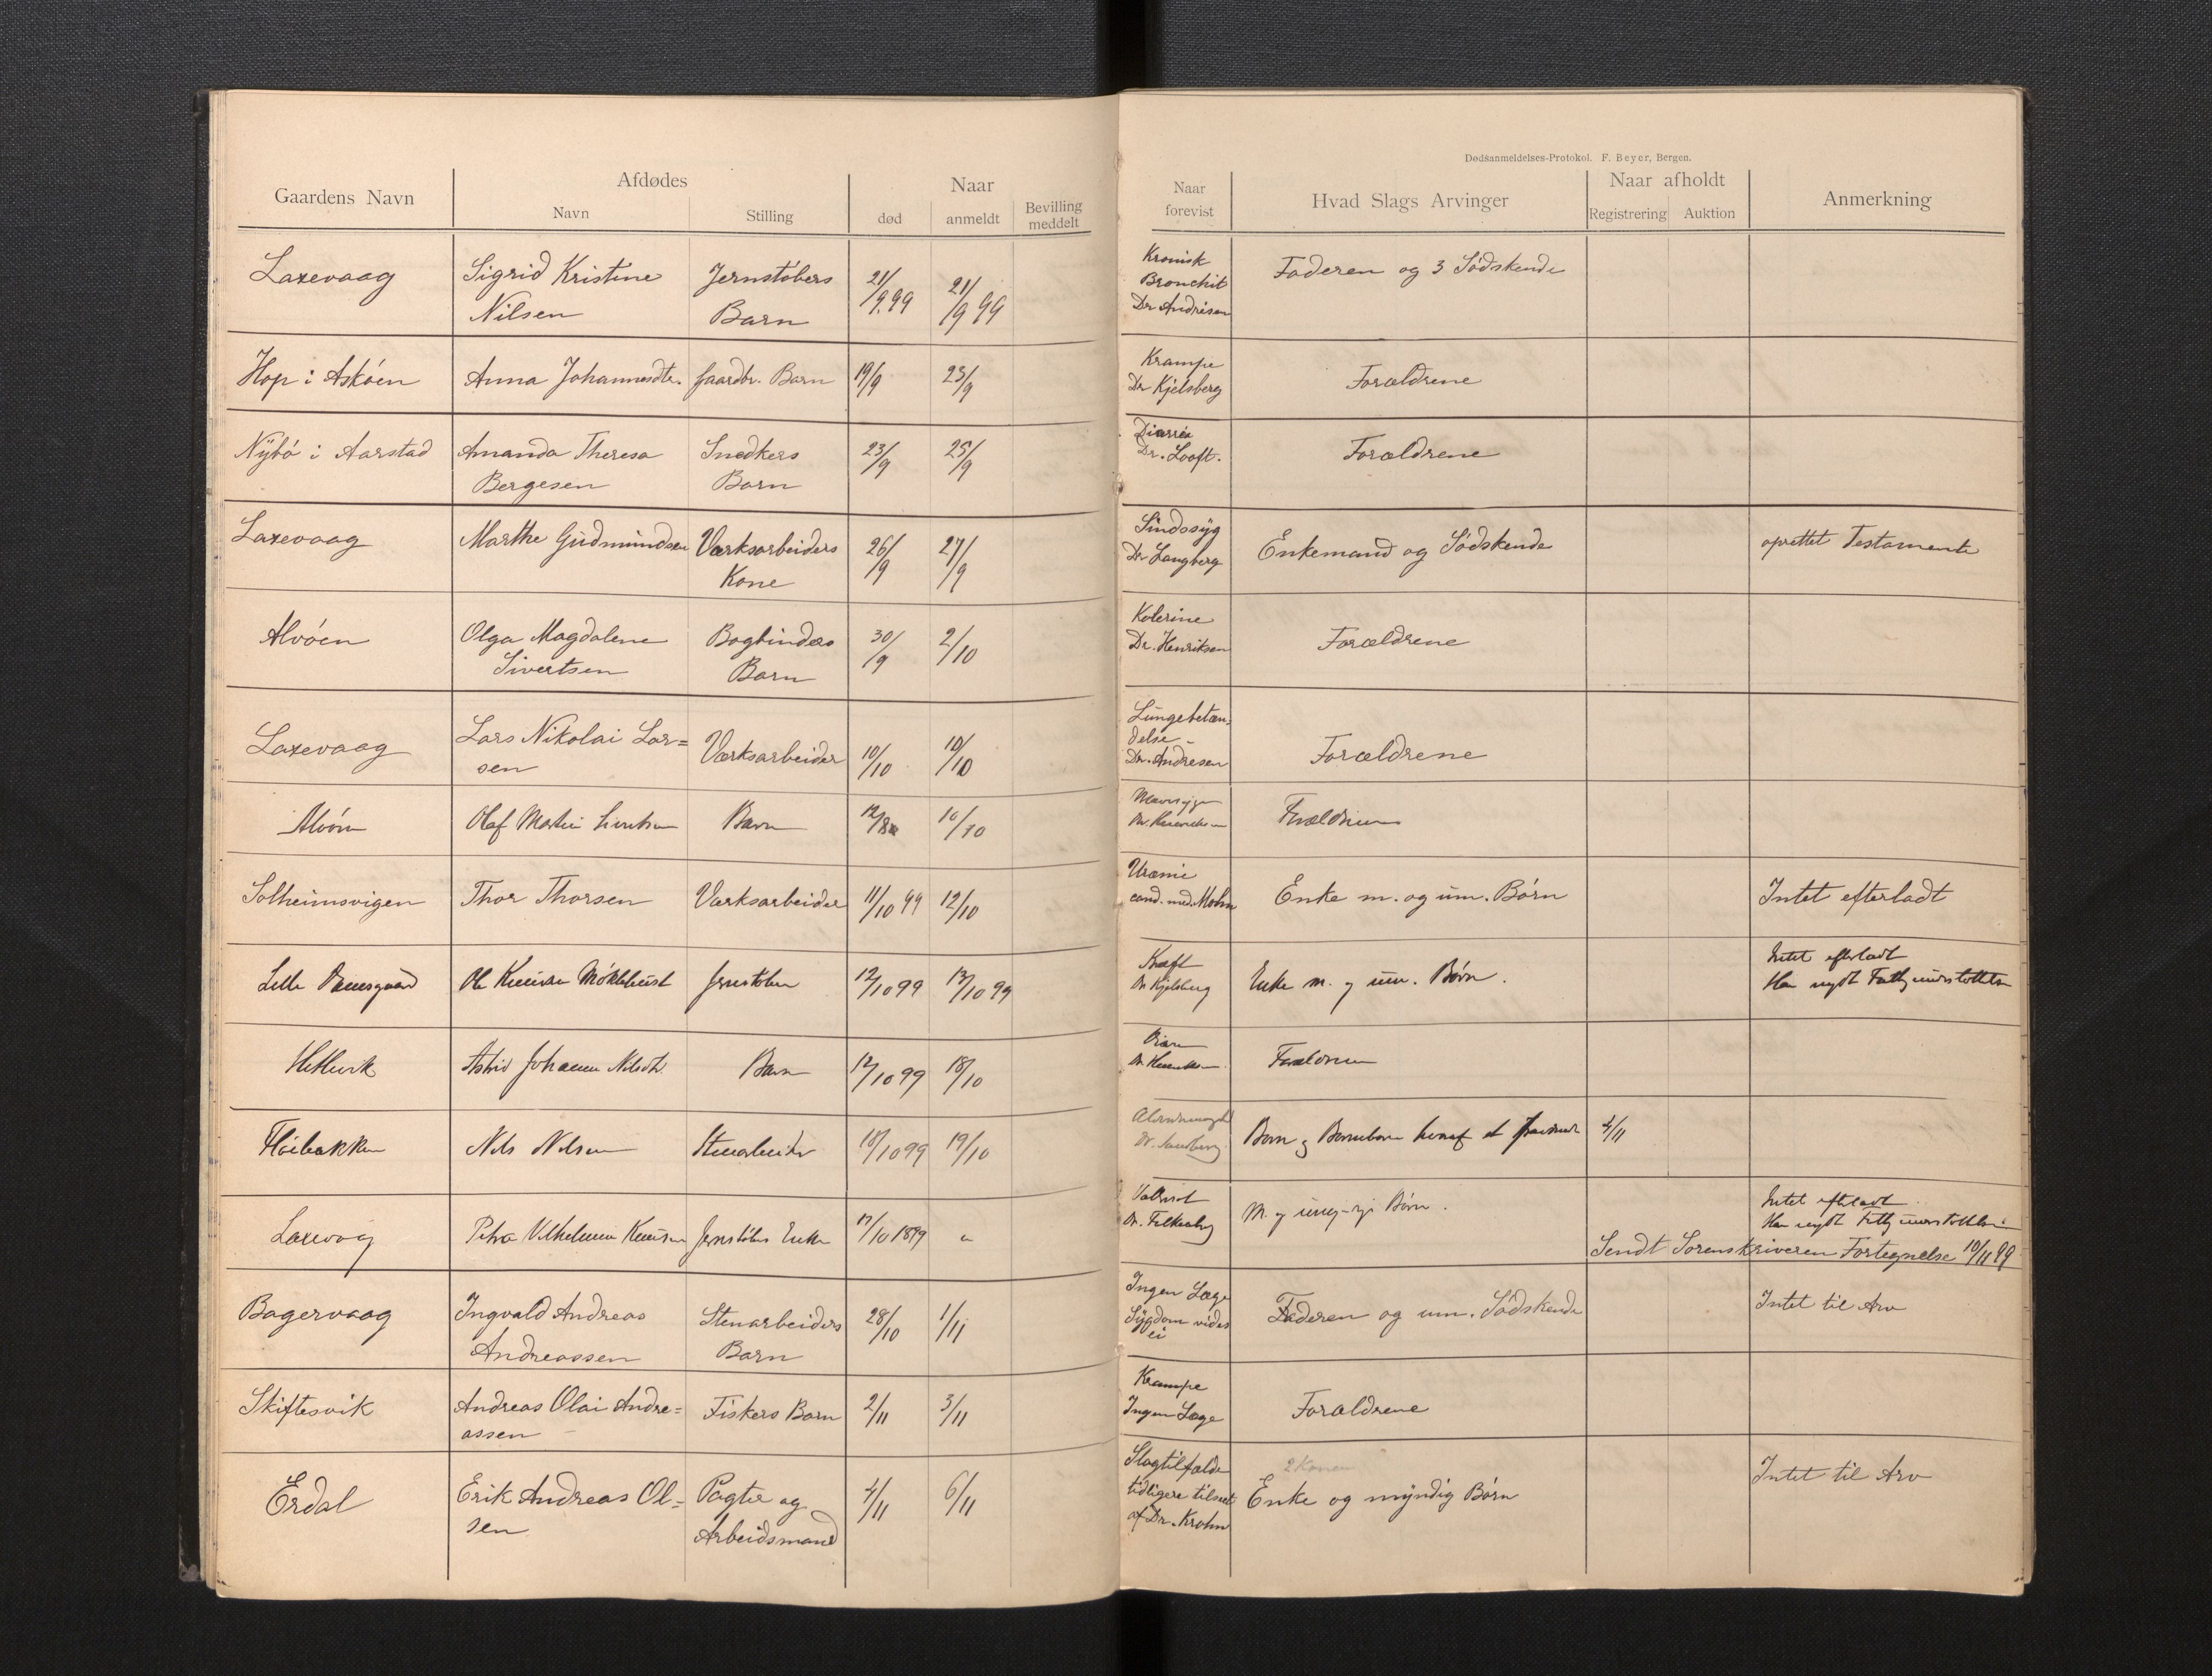 Dødsanmeldelses-Protokol. F. Beyer, Bergen.
Gaardens Navn
Afdødes
Navn
Stilling
Naar
død
anmeldt
Bevilling
meddelt
Naar
forevist
Hvad Slags Arvinger
Naar afholdt
Registrering
Auktion
Anmerkning
Laxevaag
Sigrid Kristine
Nilsen
Jernstøbers
Barn
21/9.99
21/9 99
Kronisk
Bronchit
Dr Andrésen
Faderen og 3 Sødskende
Hop i Askøen
Anna Johannesdtr.
Gaardbr. Barn
19/9
23/9
Krampe
Dr Kjelsberg
Forældrene
Nÿbø i Aarstad
Amanda Theresa
Bergesen
Snedkers
Barn
23/9
25/9
Diarréa
Dr. Looft.
Forældrene
Laxevaag
Marthe Gudmundsen
Værksarbeiders
Kone
26/9
27/9
Sindssÿg
Dr Langberg
Enkemand og Sødskende
oprettet Testamente
Alvøen
Olga Magdalene
Sivertsen
Bogbinders
Barn
30/9
2/10
Kolerine
Dr. Henriksen
Forældrene
Laxevaag
Lars Nikolai Lar=
sen
Værksarbeider
10/10
10/10
Lungebetæn-
delse -
Dr. Andresen
Forældrene
Alvøen
Olaf Martin
Barn
10/10
Forældrene
Solheimsvigen
Thor Thorsen
Værksarbeider
11/10 99
12/10
Uræmie
cand. med. Mohn
Enke m. og um. Børn
Intet efterladt
Lille Damsgaard
Ole Knudsen Møklebust
Jernstøber
12/10 99
13/10 99
Kræft
Dr Kjelsberg
Enke m. og um. Børn.
Intet efterladt
Har nydt Fattigunderstøttelse
Hetlevik
Astrid Johanne Nilsdtr.
Barn
12/10 99
18/10
Forældrene
Høibakken
Nils Nilsen
Stenarbeider
18/10 99
19/10
Alderdomssvaghed
Dr. Sandberg
Børn og Børnebørn hvoraf et
4/11
Laxevaag
Petra Vilhelmine Knudsen
Jernstøbers Enke
17/10 1899
"
M. og umyndige Børn.
Intet efterladt
Har nydt Fattigunderstøttelse
Sendt Sorenskriveren Fortegnelse 10/11 99
Bagervaag
Ingvald Andreas
Andreassen
Stenarbeiders
Barn
28/10
1/11
Ingen Læge
Sÿgdom vides
ei
Faderen og um. Sødskende
Intet til Arv
Skiftesvik
Andreas Olai Andre=
assen
Fiskers Barn
2/11
3/11
Krampe
Ingen Læge
Forældrene
Erdal
Erik Andreas Ol=
sen
Pagter og
Arbeidsmand
4/11
6/11
Slagtilfælde
tidligere tilseet
af Dr. Krohn
2 Koner
Enke og mÿndig Børn
Intet til Arv